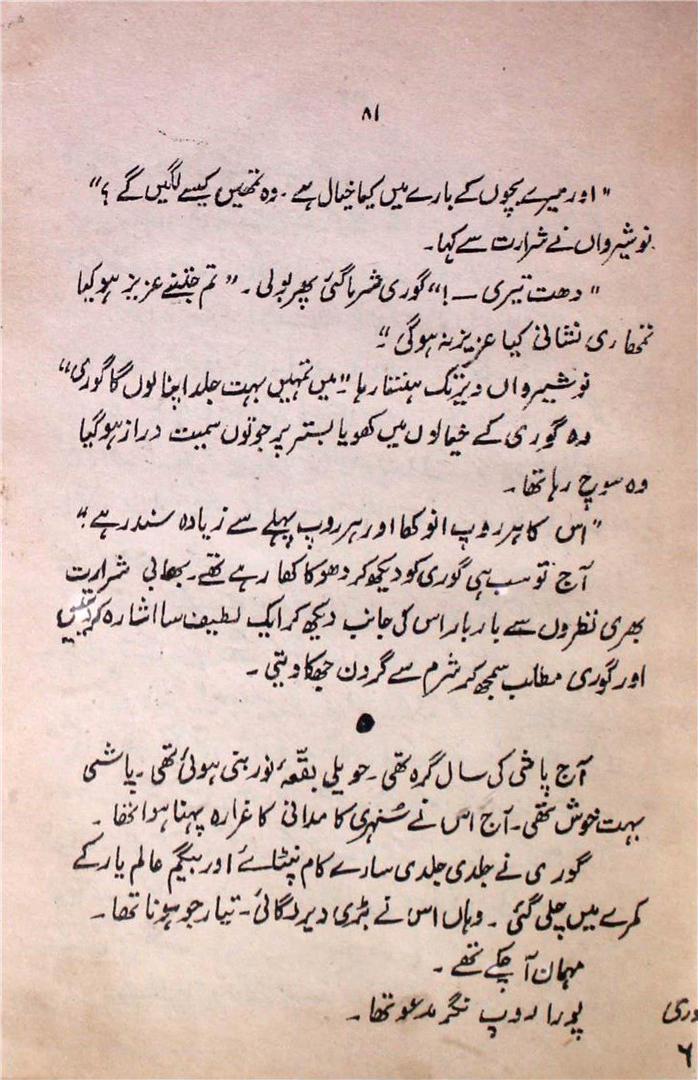 ۸۱
" اور میرے بچوں کے بارے میں کیا خیال ہے ۔ وہ تمھیں کیسے لگیں گے ؟"
نوشیرواں نے شرارت سے کہا۔
" دھت تیری ــ !" گوری شرما گئی پھر بولی ۔ " تم جتنے عزیز ہو کیا
تمھاری نشانی کیا عزیز نہ ہو گی "۔
نوشیرواں دیر تک ہنستا رہا "۔ میں تمہیں بہت جلد اپنا لوں گا گوری"
وہ گوری کے خیالوں میں کھویا بستر پر جوتوں سمیت دراز ہو گیا
وہ سوچ رہا تھا ۔
"اس کا ہر روپ انوکھا اور ہر روپ پہلے سے زیادہ سندر ہے "۔
آج تو سب ہی گوری کو دیکھ کر دھوکا کھا رہے تھے ۔ بھابی شرارت
بھری نظروں سے بار بار اس کی جانب دیکھ کر ایک لطیف سا اشارہ کرتیں
اور گوری مطلب سمجھ کر شرم سے گردن جھکا دیتی ۔
آج یاشی کی سال گرہ تھی ۔ حویلی بقعۂ نور بنی ہوئی تھی ۔ یاشمی
بہت خوش تھی ۔ آج اس نے سُنہری کا مدانی کا غرارہ پہنا ہوا تھا ۔
گوری نے جلدی جلدی سارے کام نپٹائے اور بیگم عالم یار کے
کمرے میں چلی گئی ۔ وہاں اس نے بڑی دیر لگائی ۔ تیار جو ہونا تھا ۔
مہمان آ چکے تھے ۔
پورا روپ نگر مدعو تھا ۔
وری
۶